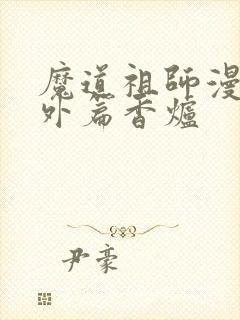 魔道祖師漫
外篇香爐
尹豪